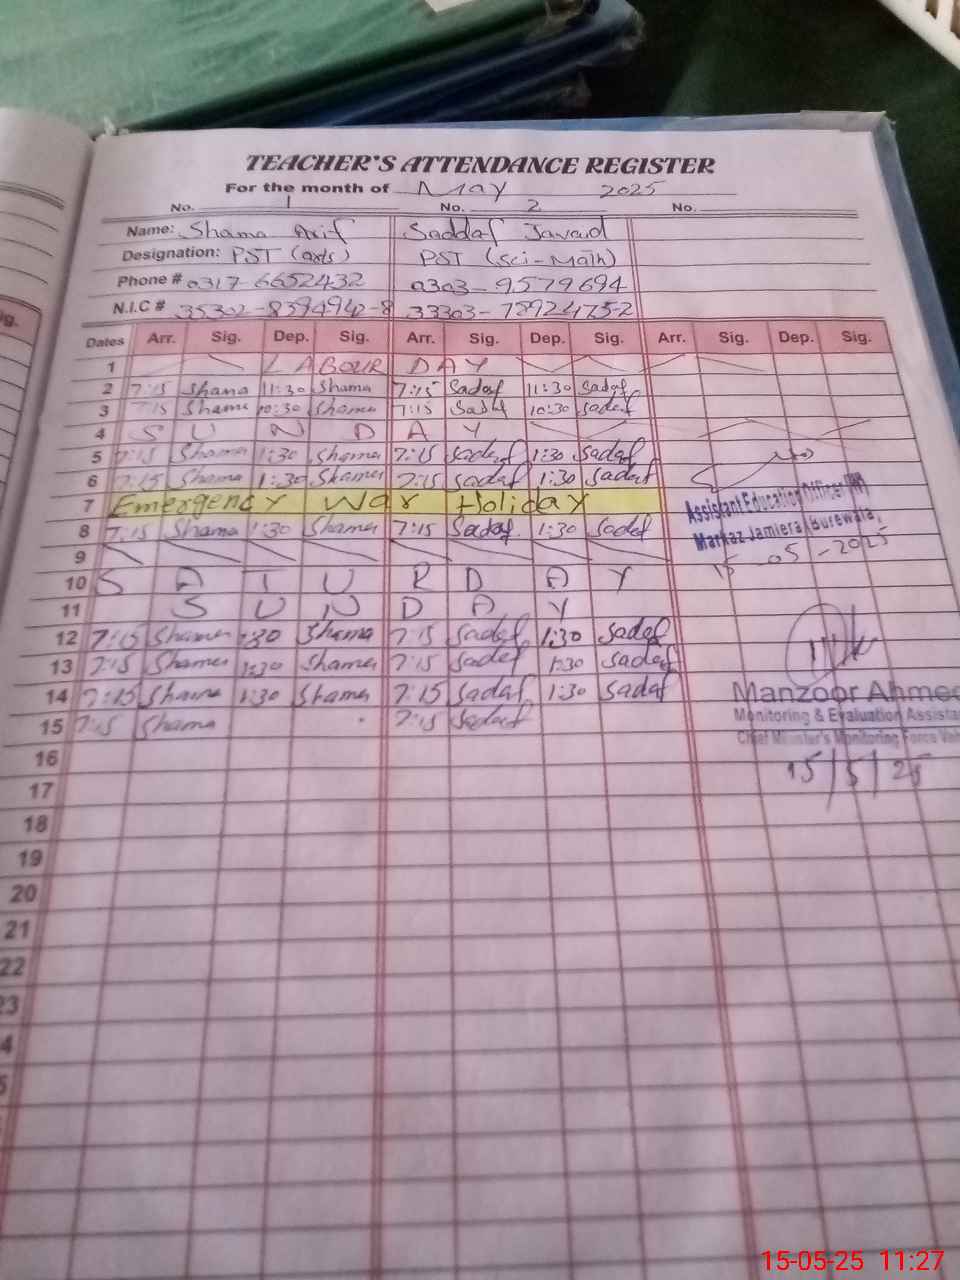 TEACHER'S ATTENDANCE REGISTER
For the month of May 2025
No. 1 No. 2 No.
Name: Shama Arif Saddaf Javaid
Designation: PST (arts) PST (Sci-Math)
Phone # 0317-6652432 0303-9579694
N.I.C # 35302-8394942-8 33303-7892475-2
Dates Arr. Sig. Dep. Sig. Arr. Sig. Dep. Sig. Arr. Sig. Dep. Sig.
1 LABOUR DAY
2 7:15 Shama 11:30 Shama 7:15 Sadaf 11:30 Sadaf
3 7:15 Shama 10:30 Shama 7:15 Sadaf 10:30 Sadaf
4 S U N D A Y
5 7:15 Shama 1:30 Shama 7:15 Sadaf 1:30 Sadaf
6 7:15 Shama 1:30 Shama 7:15 Sadaf 1:30 Sadaf
7 Emergency War Holiday
8 7:15 Shama 1:30 Shama 7:15 Sadaf 1:30 Sadaf
9
10 S A T U R D A Y
11 S U N D A Y
12 7:15 Shama 1:30 Shama 7:15 Sadaf 1:30 Sadaf
13 7:15 Shama 1:30 Shama 7:15 Sadaf 1:30 Sadaf
14 7:15 Shama 1:30 Shama 7:15 Sadaf 1:30 Sadaf
15 7:15 Shama 7:15 Sadaf
16
17
18
19
20
21
22
23
4
5
ig.
Assistant Education Officer (W)
Markaz Jamlera (Burewala)
15-05-2025
Manzoor Ahmed
Monitoring & Evaluation Assista
Chief Minister's Monitoring Force Veh
15/5/25
15-05-25 11:27